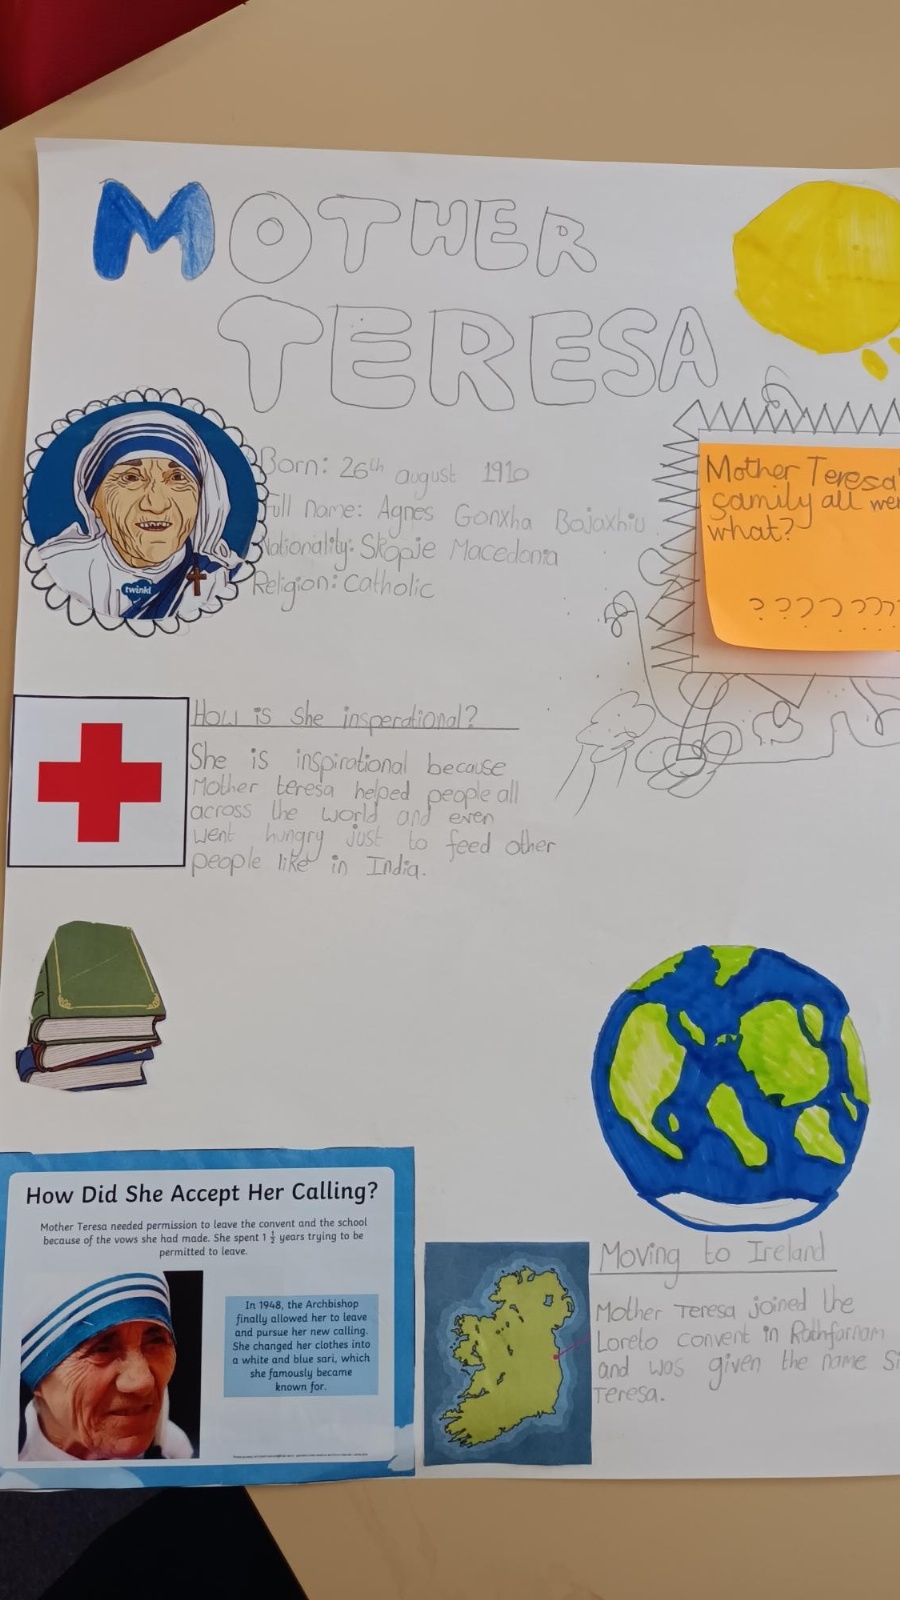 MOTHER
TERESA
Born: 26th august 1910
Full name: Agnes Gonxha Bojaxhiu
Nationality: Skopje Macedonia
Religion: Catholic
twinkl
Mother Teresa'
family all wer
what?
????????
How is she insperational?
She is inspirational because
Mother teresa helped people all
across the world and even
went hungry just to feed other
people like in India.
How Did She Accept Her Calling?
Mother Teresa needed permission to leave the convent and the school
because of the vows she had made. She spent 1 ½ years trying to be
permitted to leave.
In 1948, the Archbishop
finally allowed her to leave
and pursue her new calling.
She changed her clothes into
a white and blue sari, which
she famously became
known for.
Moving to Ireland
Mother Teresa joined the
Loreto convent in Rathfarnam
and was given the name Si
Teresa.